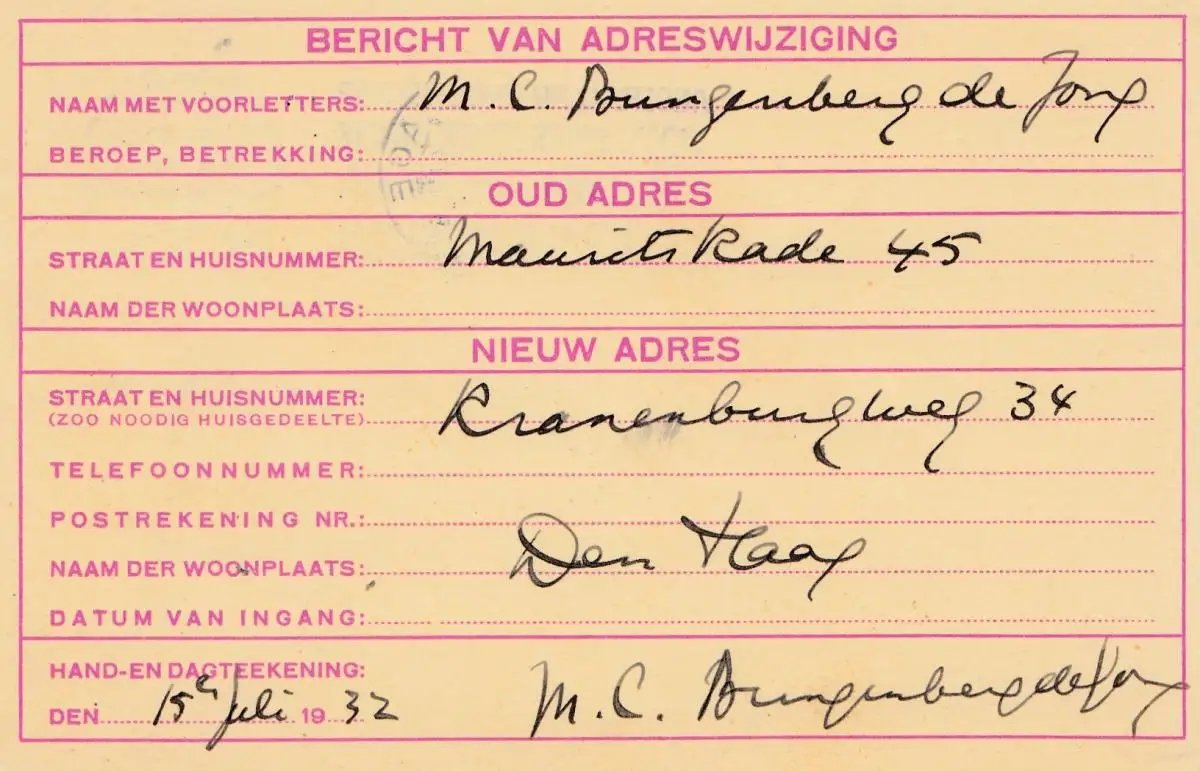 BERICHT VAN ADRESWIJZIGING
NAAM MET VOORLETTERS: M. C. Bungenberg de Jong
BEROEP, BETREKKING:
OUD ADRES
STRAAT EN HUISNUMMER: Mauritskade 45
NAAM DER WOONPLAATS:
NIEUW ADRES
STRAAT EN HUISNUMMER: Kranenburgweg 34
(ZOO NOODIG HUISGEDEELTE)
TELEFOONNUMMER:
POSTREKENING NR.:
NAAM DER WOONPLAATS: Den Haag
DATUM VAN INGANG:
HAND- EN DAGTEEKENING:
DEN 15en Juli 1932 M. C. Bungenberg de Jong